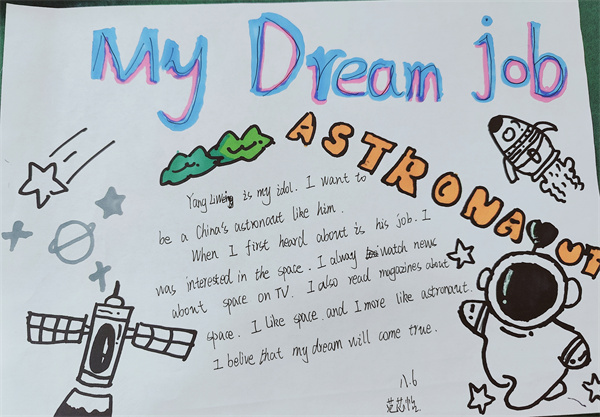 My Dream job
ASTRONAUT
Yang Liwei is my idol. I want to
be a China's astronaut like him.
When I first heard about is his job. I
was interested in the space. I alway watch news
about space on TV. I also read magazines about
space. I like space and I more like astronaut.
I belive that my dream will come true.
八.6